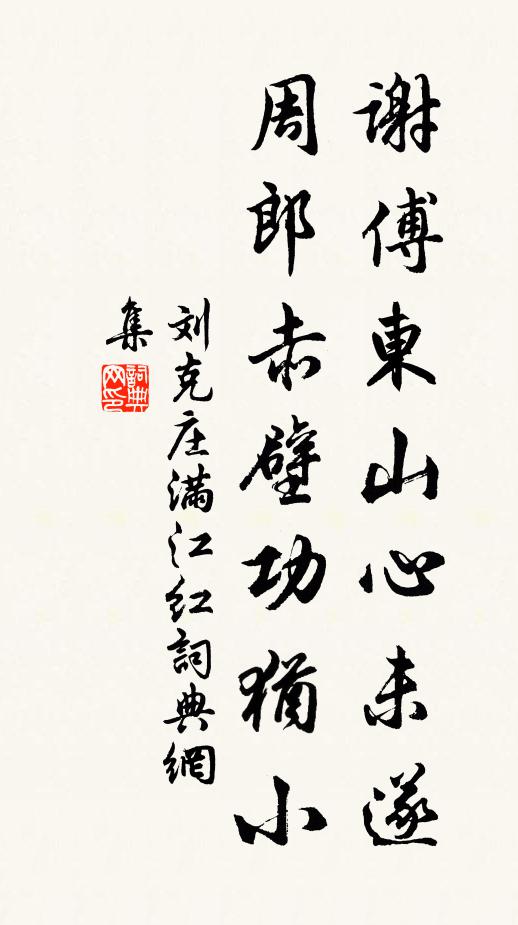 謝傅東山心未遂
周郎赤壁功猶小
刘克庄满江红詞典網
集
詞典网印